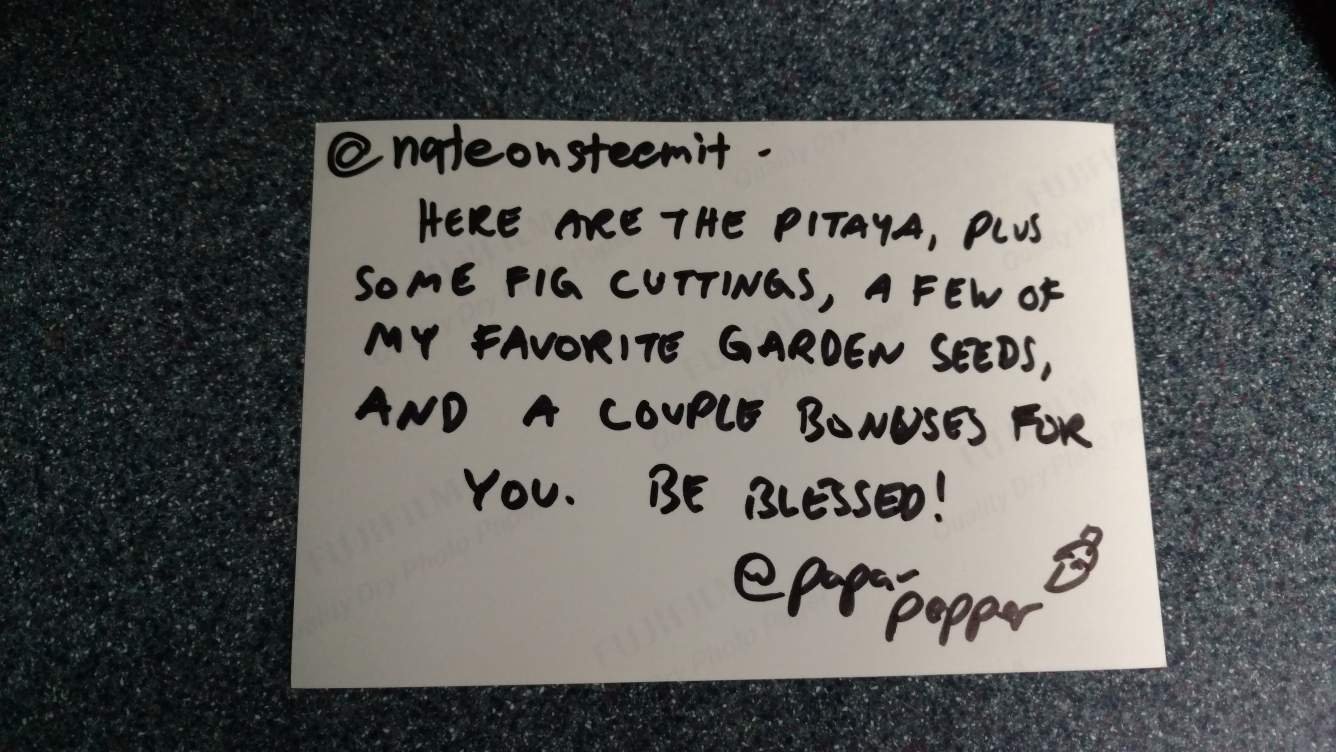 @nateonsteemit -
HERE ARE THE PITAYA, PLUS
SOME FIG CUTTINGS, A FEW OF
MY FAVORITE GARDEN SEEDS,
AND A COUPLE BONUSES FOR
YOU. BE BLESSED!
@papa-
pepper
FUJIFILM
Quality Dry Photo Paper